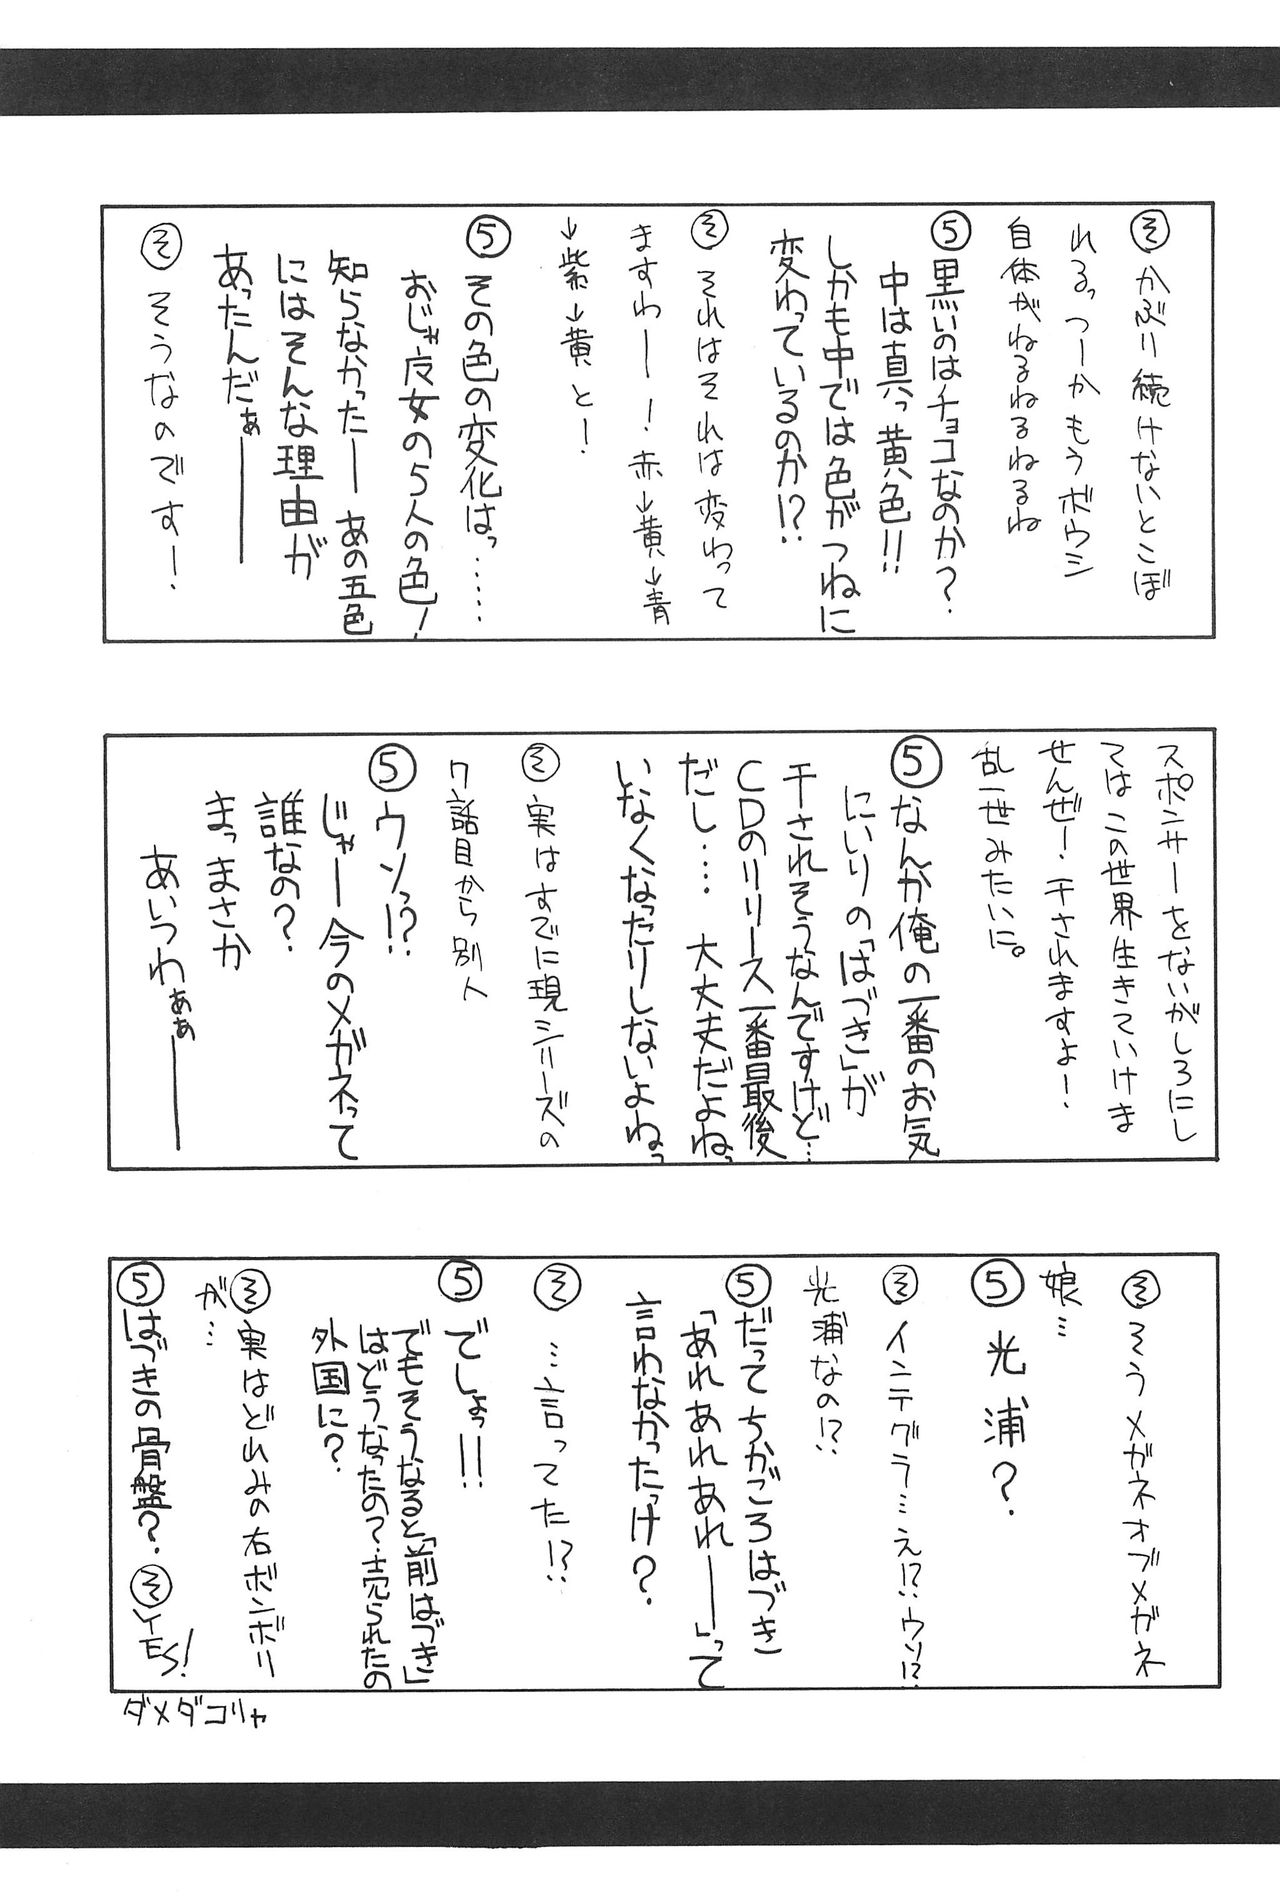 ㋞かぶり続けないとこぼ
れるっつーかもうボウシ
自体がねるねるねるね
⑤黒いのはチョコなのか？
中は真っ黄色!!
しかも中では色がつねに
変わっているのか!?
㋞それはそれは変わって
ますわー！赤→黄→青
→紫→黄と！
⑤その色の変化はっ……
おじゃ魔女の5人の色！
知らなかったー あの五色
にはそんな理由が
あったんだぁーー
㋞そうなのです！
スポンサーをないがしろにし
てはこの世界生きていけま
せんぜー・干されますよー！
乱一世みたいに。
⑤なんか俺の一番のお気
にいりの「はづき」が
干されそうなんですけど…
CDのリリース一番最後
だし… 大丈夫だよねっ
いなくなったりしないよねっ
㋞実はすでに現シリーズの
7話目から別人
⑤ウソっ!?
じゃー今のメガネって
誰なの？
まっまさか
あいつわぁぁーー
㋞そうメガネオブメガネ
娘…
⑤光浦？
㋞インテグラ…え!?ウソ!?
光浦なの!?
⑤だってちかごろはづき
「あれあれあれー」って
言わなかったっけ？
㋞…言ってた!?
⑤でしょっ!!
でもそうなると「前はづき」
はどうなったの？売られたの
外国に？
㋞実はどれみの右ボンボリ
が…
⑤はづきの骨盤？ ㋞YES！
ダメダコリャ